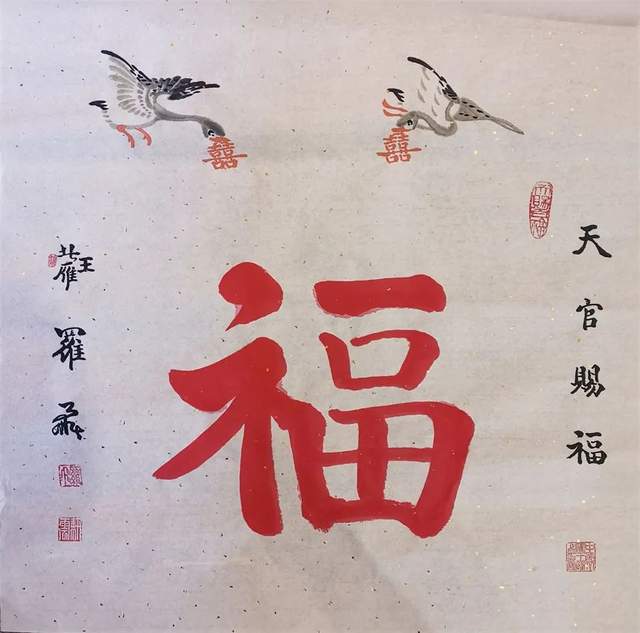 囍
囍
天官賜福
福
北雁王
羅